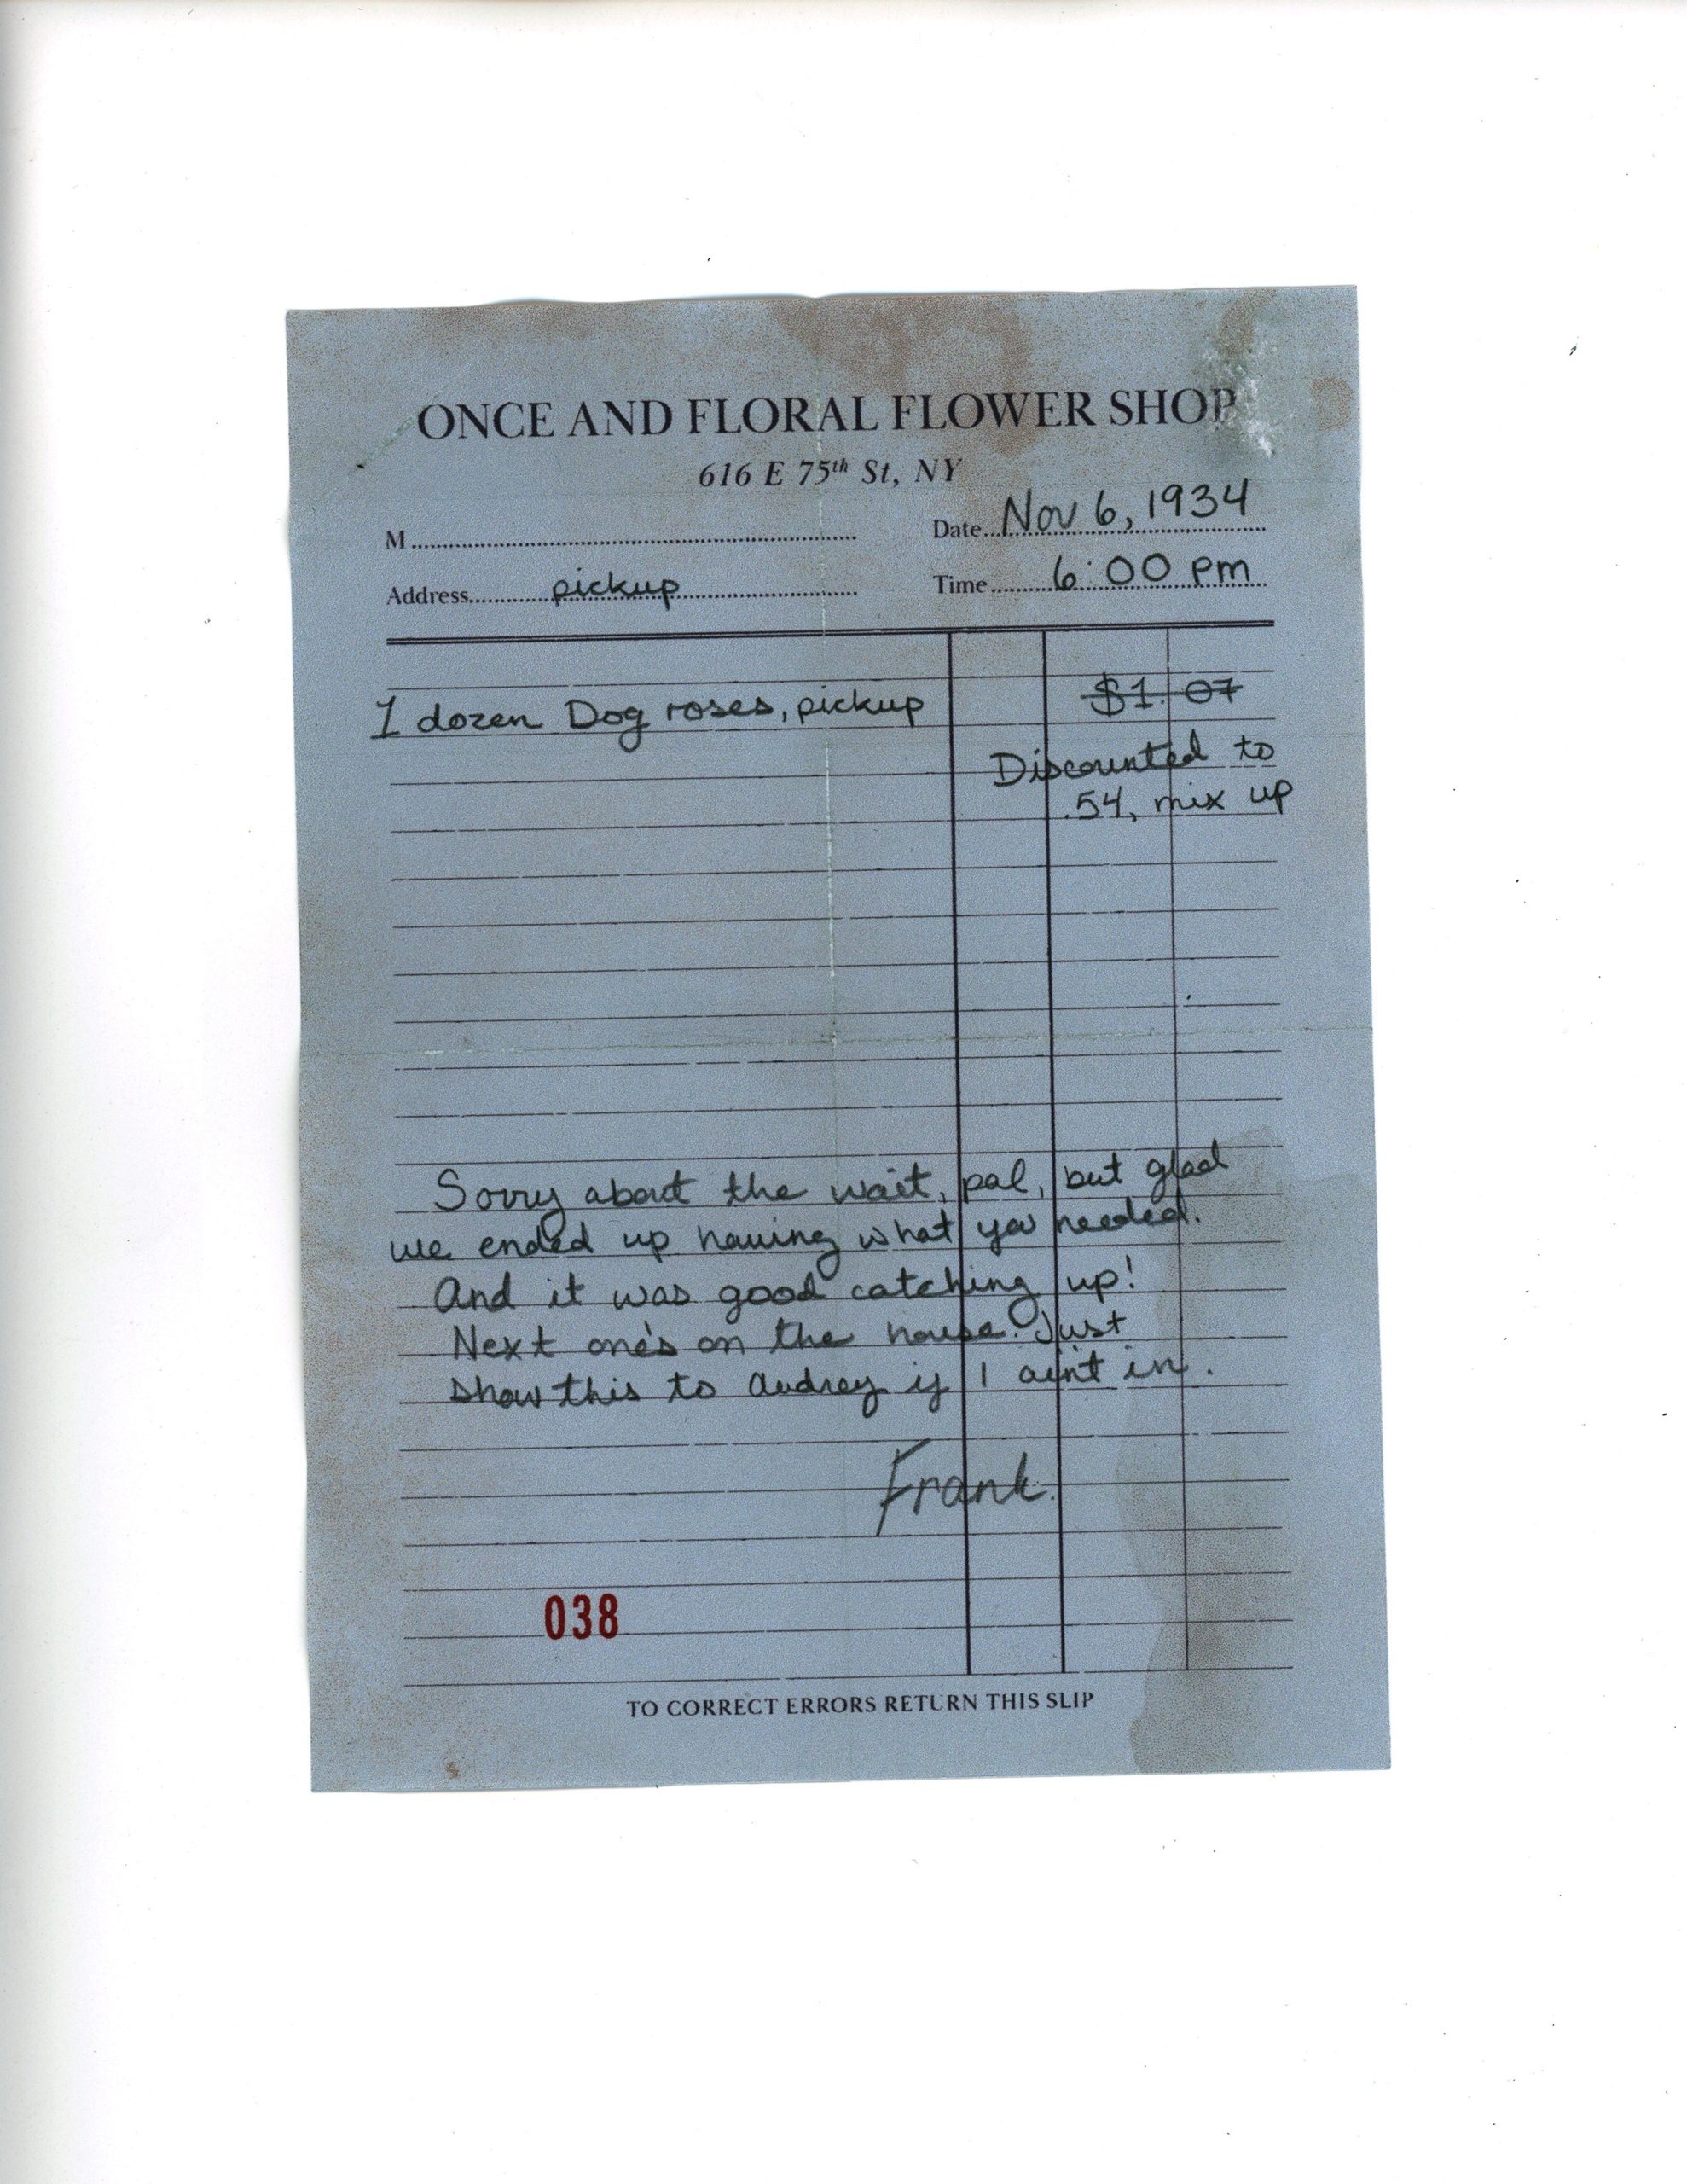 ONCE AND FLORAL FLOWER SHOP
616 E 75th St, NY
M
Date Nov 6, 1934
Address pickup
Time 6:00 pm
1 dozen Dog roses, pickup
$1.07
Discounted to
.54, mix up
Sorry about the wait, pal, but glad
we ended up having what you needed.
And it was good catching up!
Next one's on the house. Just
show this to Audrey if I ain't in.
Frank
038
TO CORRECT ERRORS RETURN THIS SLIP